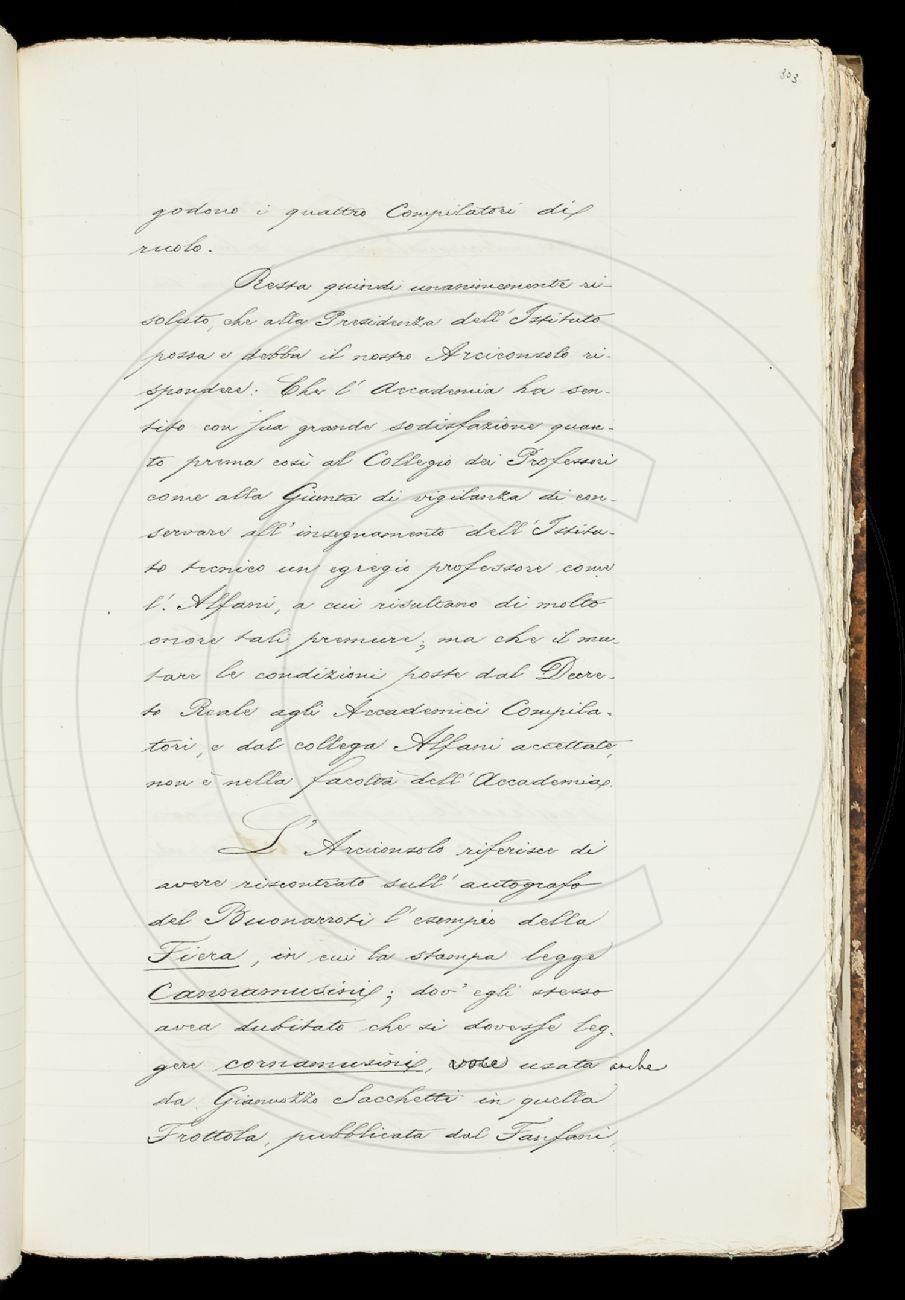 303
godono i quattro Compilatori di
ruolo.
Resta quindi unanimemente ri-
soluto, che alla Presidenza dell'Istituto
possa e debba il nostro Arciconsolo ri-
spondere: Che l'Accademia ha sen-
tito con sua grande sodisfazione quan-
to prema così al Collegio dei Professori
come alla Giunta di vigilanza di con-
servare all'insegnamento dell'Istitu-
to tecnico un egregio professore come
l'Alfani, a cui risultano di molto
onore tali premure; ma che il mu-
tare le condizioni poste dal Decre-
to Reale agli Accademici Compila-
tori, e dal collega Alfani accettate,
non è nella facoltà dell'Accademia.
L'Arciconsolo riferisce di
avere riscontrato sull'autografo
del Buonarroti l'esempio della
Fiera, in cui la stampa legge
Canoramusini; dov'egli stesso
avea dubitato che si dovesse leg-
gere cornamusini, voce usata anche
da Giannozzo Sacchetti in quella
Frottola, pubblicata dal Fanfani,